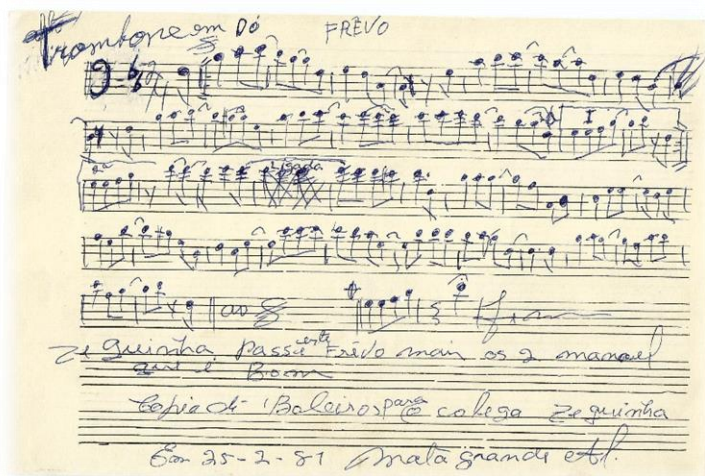 Trombone em Dó FRÊVO
I
2ª ligada
ao
Fim
Zeguinha, Passe este Frêvo mais os 2 manoel
que é Boom
Copia di Boleiros para o colega Zeguinha
Em 25-2-81 Mata grande Al.